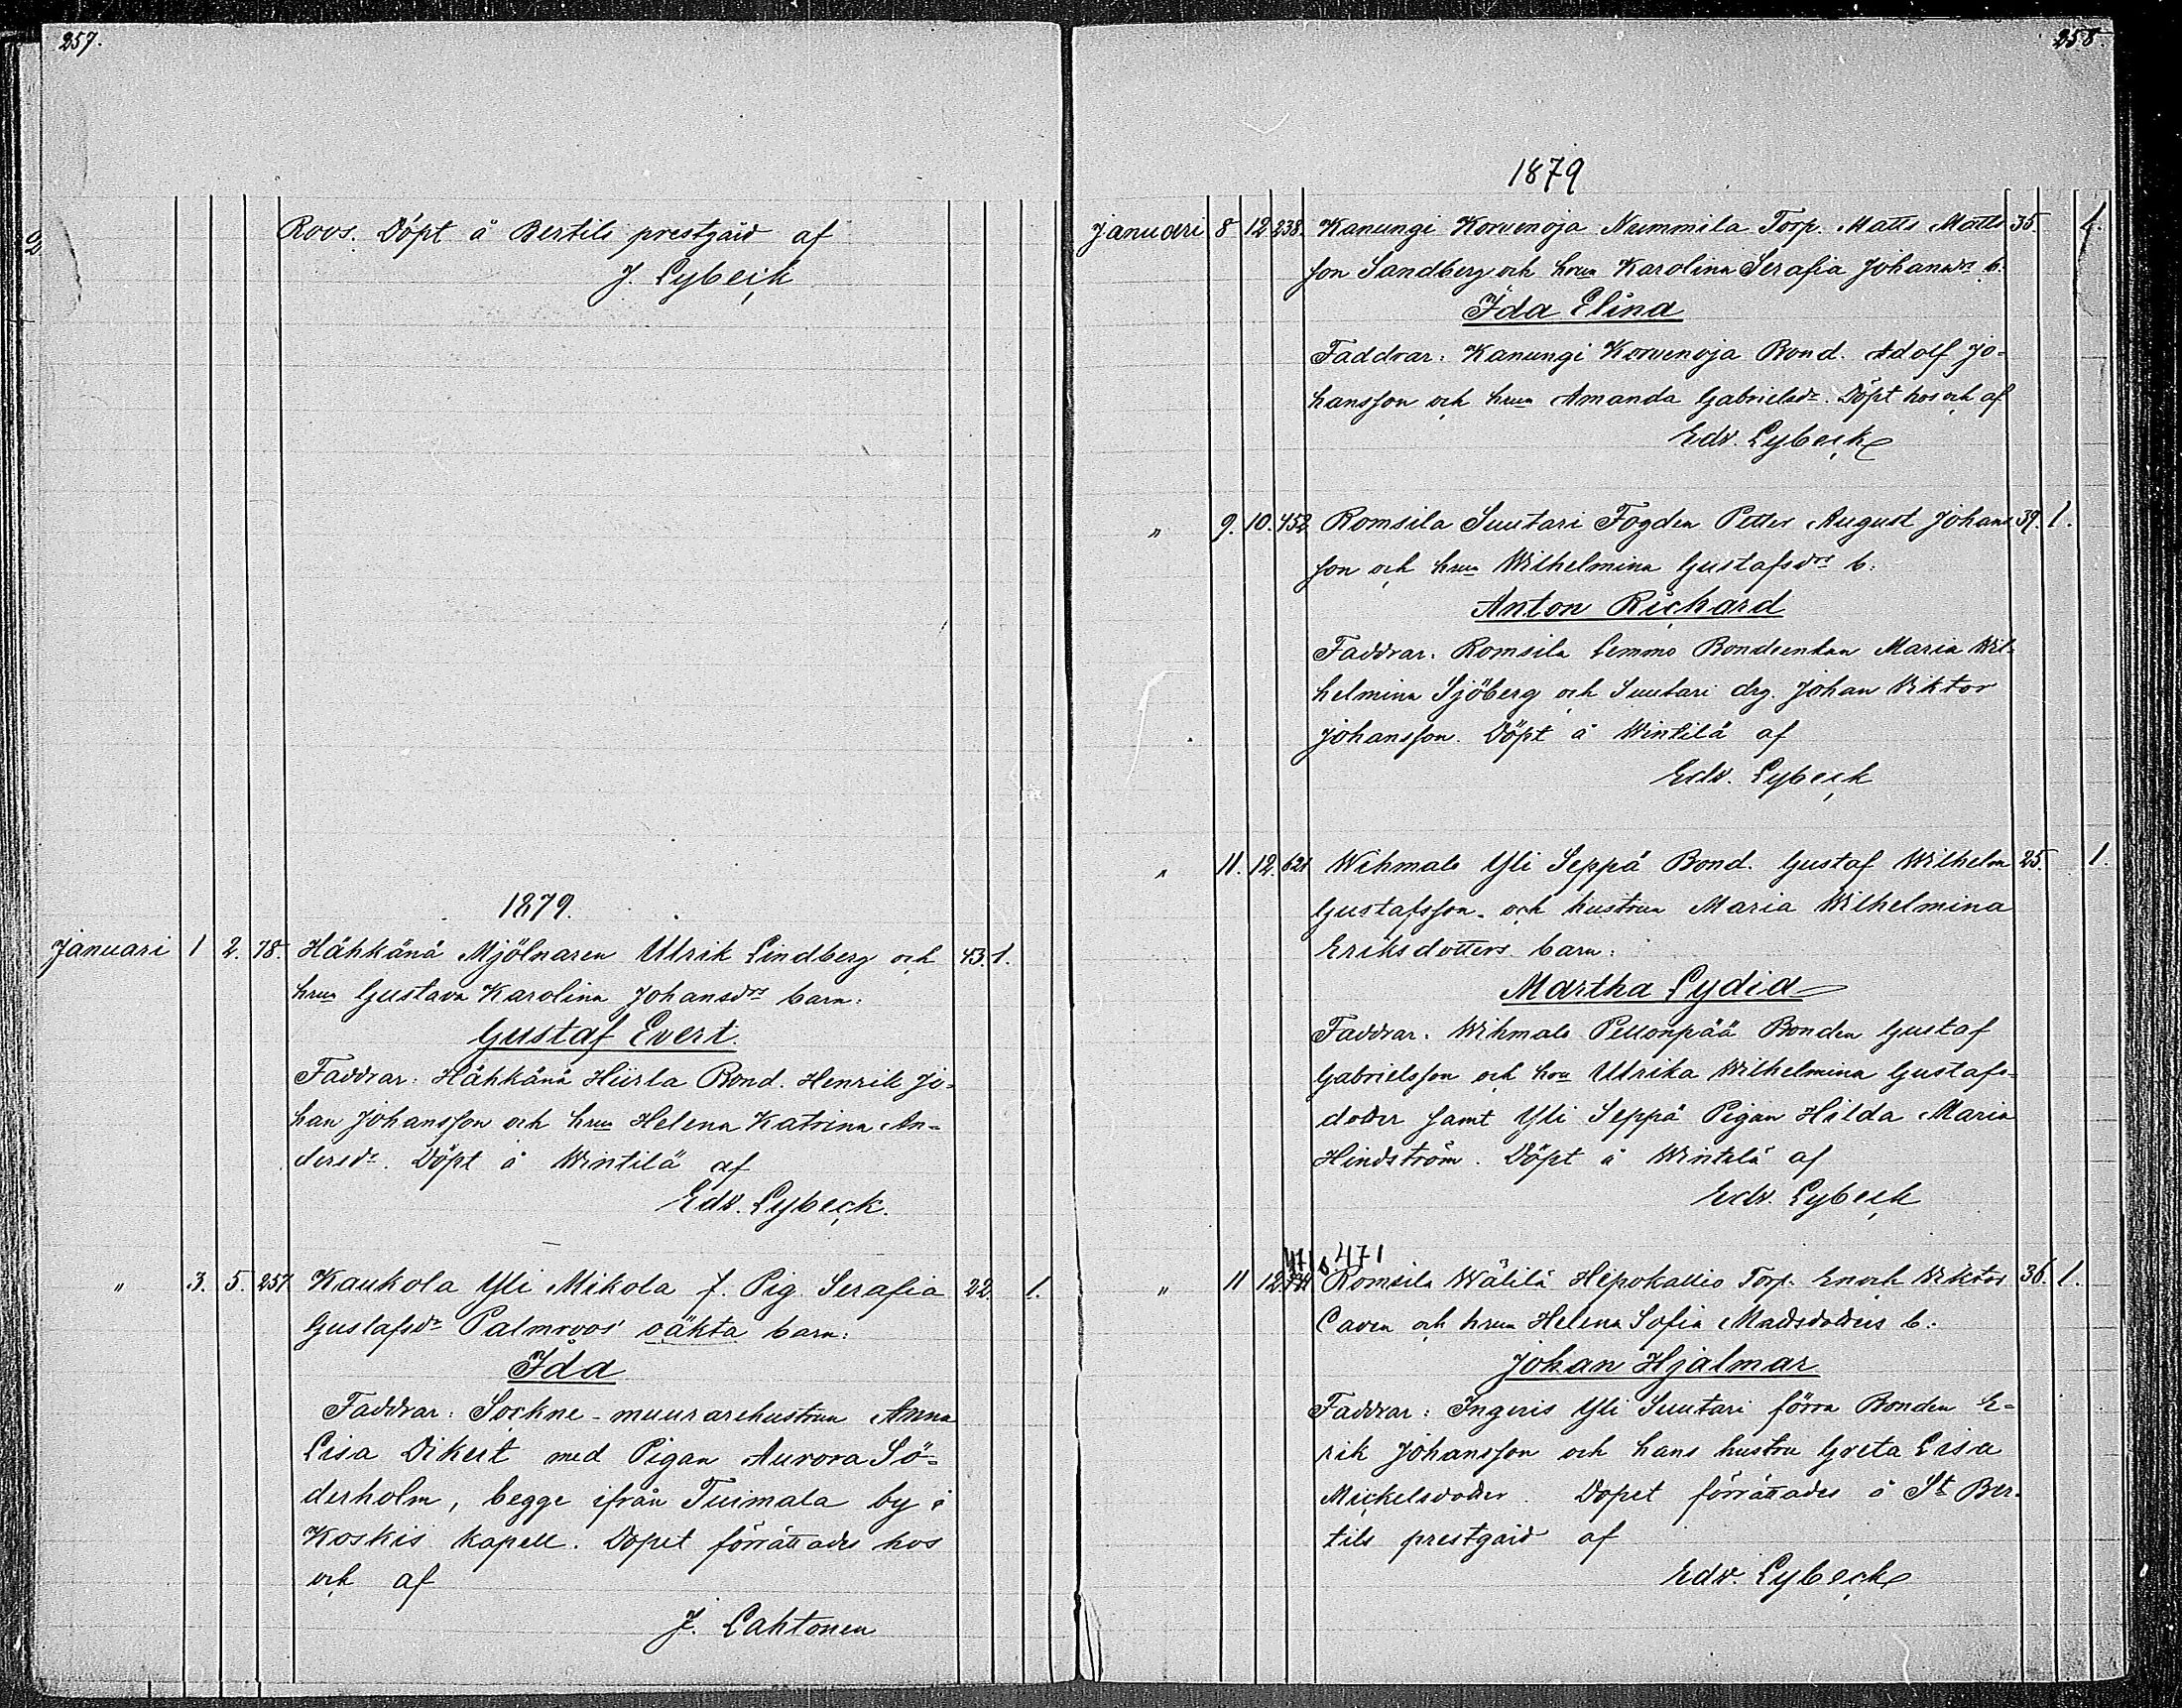 257.
Roos. Döpt å Bertils prestgård af
J. Lybeck
1879.
Januari 1 2. 78. Hähkänä Mjölnaren Ulrik Lindberg och 43. 1.
hrun Gustava Karolina Johansdrs barn:
Gustaf Evert.
Faddrar: Hähkänä Hiirla Bond. Henrik Jo-
han Johansson och hrun Helena Katrina An-
dersdr. Döpt å Wintilä af
Edv. Lybeck.
" 3. 5. 257 Kaukola Yli Mikola f. Pig. Serafia 22. 1.
Gustafsdr Palmroos' oäkta barn:
Ida
Faddrar: Sockne-muurarehustrun Anna
Lisa Dikert med Pigan Aurora Sö-
derholm, begge ifrån Tuimala by i
Koskis kapell. Dopet förrättades hos
och af
J. Lahtonen
258.
1879
Januari 8 12 238. Kanungi Korvenoja Nummila Torp. Matts Matts 35. 1.
son Sandberg och hrun Karolina Serafia Johansdrs b.
Ida Elina
Faddrar: Kanungi Korvenoja Bond. Adolf Jo-
hansson och hrun Amanda Gabrielsdr. Döpt hos och af
Edv. Lybeck
" 9. 10. 452 Romsila Suutari Fogden Petter August Johans 39. 1.
son och hrun Wilhelmina Gustafsdrs b.
Anton Richard
Faddrar. Romsila Lemmo Bondeenkan Maria Wil-
helmina Sjöberg och Suutari drg. Johan Viktor
Johansson. Döpt å Wintilä af
Edv. Lybeck
" 11. 12. 621 Wihmalo Yli Seppä Bond. Gustaf Wilhelm 25. 1.
Gustafsson och hustrun Maria Wilhelmina
Eriksdotters barn:
Martha Lydia
Faddrar. Wihmalo Pellonpää Bonden Gustaf
Gabrielsson och hru Ulrika Wilhelmina Gustafs-
dotter samt Yli Seppä Pigan Hilda Maria
Hindström. Döpt å Wintilä af
Edv. Lybeck
471
" 11 12 Romsila Wälilä Hepokallio Torp. Enoch Viktor 36. 1.
Caven och hrun Helena Sofia Mattsdotters b.
Johan Hjalmar
Faddrar: Ingeris Yli Suutari förra Bonden E-
rik Johansson och hans hustru Greta Lisa
Mickelsdotter. Dopet förrättades å St Ber-
tils prestgård af
Edv. Lybeck